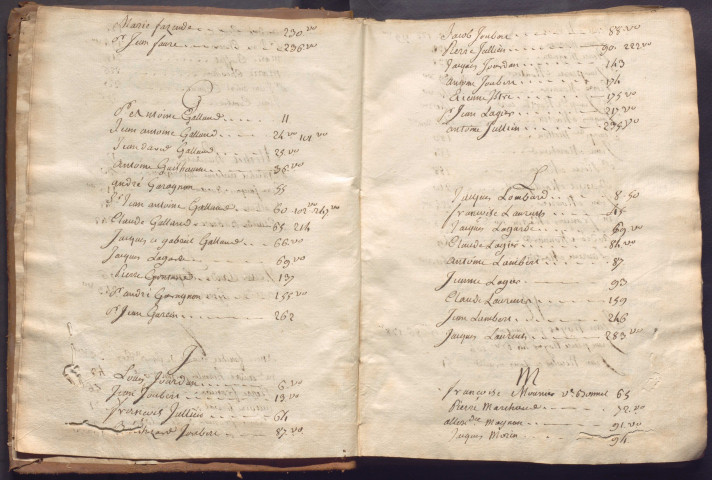 Marie fazende 230 vo
Sr Jean faure 236 vo
G
Sr Antoine Galland 11
Jean antoine Galland 24 vo 101 vo
Jean david Galland 25 vo
Antoine Guilhaume 36 vo
andré Garagnon 55
Sr Jean antoine Galland 60. 102 vo 247 vo
Claude Galland 65 214
Jacques et gabriel Galland 66 vo
Jacques Lagarde 69 vo
Pierre 137
Sr andré Garagnon 155 vo
Sr Jean Garcin 262
J
Louis Jourdan 6 vo
Jean Joubert 19 vo
francois Jullien 64
Joubert 87 vo
Jacob Joubert 88 vo
Pierre Jullien 90. 222 vo
Jacques Jourdan 143
antoine Joubert 174
Etienne 175 vo
Sr Jean Lagier 217 vo
antoine Jullien 235 vo
L
Jacques Lombard 8. 50
francoise Laurens 45
Jacques Lagarde 69 vo
Claude Lagier 84 vo
antoine Lambert 87
Jeanne Lagier 93
Claude Laurens 159
Jean Lambert 246
Jacques Laurens 283 vo
M
francoise Mounier ve Bonnet 65
Pierre Marchand 72 vo
allexdre Magnan 91 vo
Jacques Morin 94